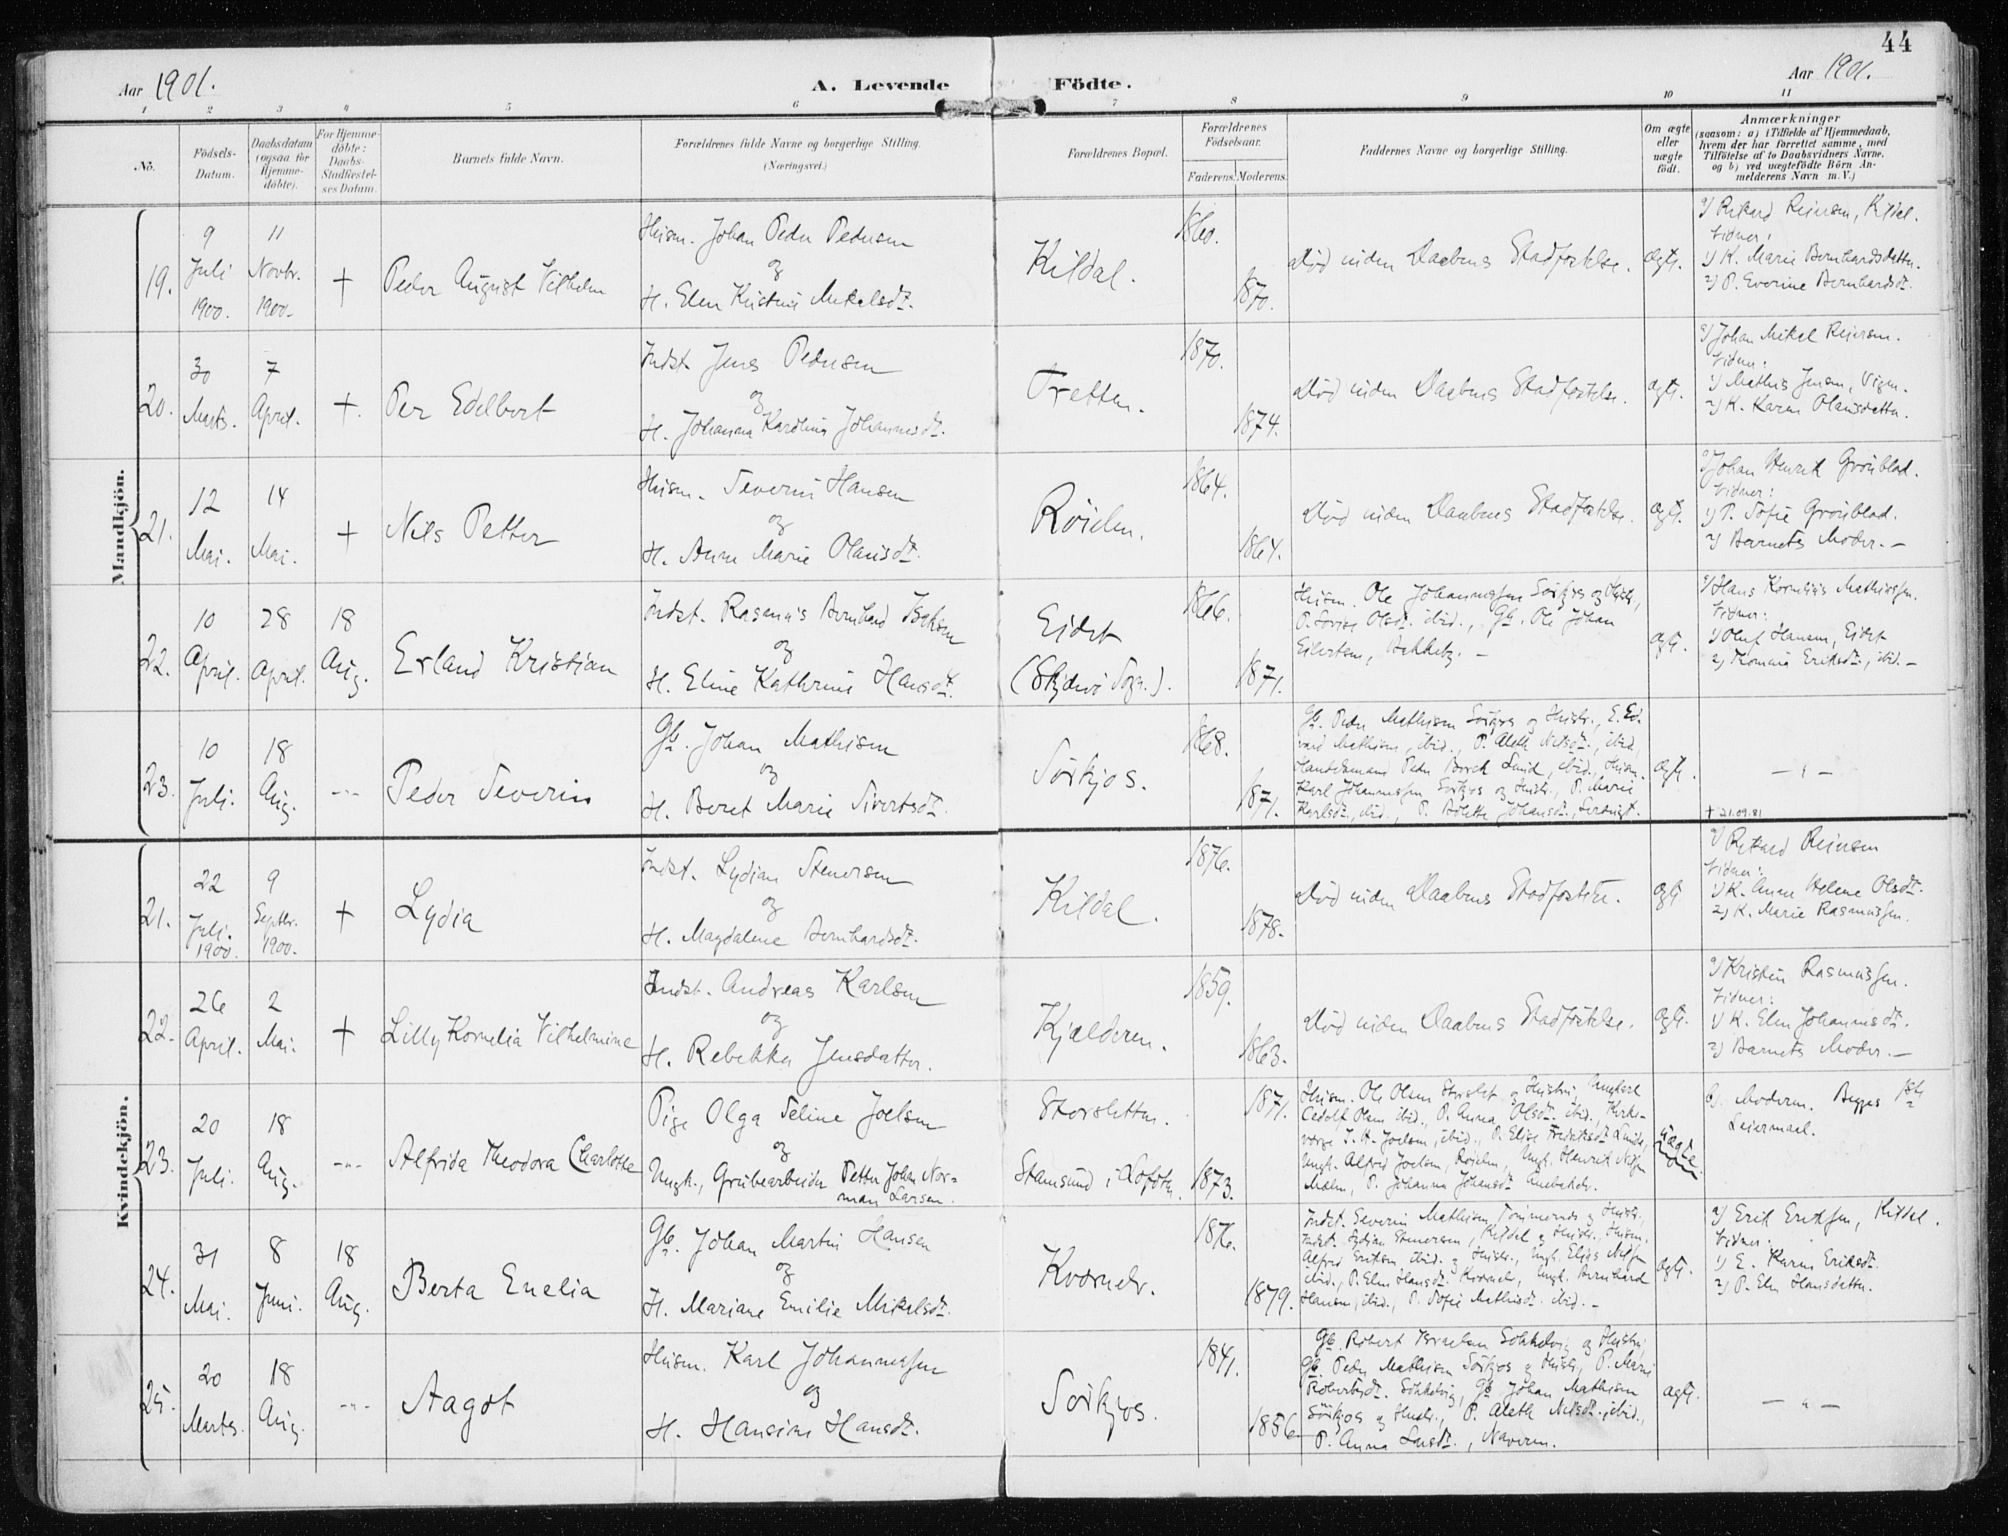 44
Aar 1901.
A. Levende Födte.
Aar 1901.
1 2 3 4 5 6 7 8 9 10 11
No.
Födsels-
Datum.
Daabsdatum
(ogsaa for
Hjemme-
döbte).
For Hjemme-
döbte:
Daabs-
Stadfæstel-
ses Datum.
Barnets fulde Navn.
Forældrenes fulde Navne og borgerlige Stilling.
(Næringsvei.)
Forældrenes Bopæl.
Forældrenes
Födselsaar.
Faderens. Moderens.
Faddernes Navne og borgerlige Stilling.
Om ægte
eller
uægte
födt.
Anmærkninger
(saasom: a) i Tilfælde af Hjemmedaab,
hvem der har forrettet samme, med
Tilföielse af to Daabsvidners Navne,
og b) ved uægtefödte Börn An-
melderens Navn m. V.)
Mandkjön.
19.
9
Juli
1900.
11
Novbr.
1900.
+
Peder August Vilhelm
Husm. Johan Peder Pedersen
og
H. Elen Kristine Mikelsdt.
Kildal.
1860.
1870.
Död inden Daabens Stadfæstelse.
ægte.
a) Rikard Reiersen, Kildal.
Vidner:
1) K. Marie Bernhardsdatter.
2) P. Everine Bernhardsdt.
20.
30
Marts.
7
April.
+.
Per Edelbert
Indst. Jens Pedersen
og
H. Johanna Karolina Johannesdt.
Tretten.
1870.
1874.
Död inden Daabens Stadfæstelse.
ægte.
a) Johan Mikal Reiersen.
Vidner:
1) Mathis Jensen,
2) K. Karen Olausdatter.
21.
12
Mai.
14
Mai.
+
Nils Petter
Husm. Severin Hansen
og
H. Anne Marie Olausdt.
Röielen.
1864.
1864.
Död inden Daabens Stadfæstelse.
ægte.
a) Johan Henrik Grönblad.
Vidner:
1) P. Sofie Grönblad.
2) Barnets Moder. —
22.
10
April.
28
April.
18
Aug.
Erland Kristian
Indst. Rasmus Bernhard Isaksen
og
H. Eline Kathrine Hansdt.
Eidet
(Skjervö Sogn.).
1866.
1871.
Husm. Ole Johannessen Sörkjos og Hustr.,
Olsdt. ibid., Gb. Ole Johan
Eilertsen, Bakkeby. —
ægte.
a) Hans Kornelius Mathiassen.
Vidner:
1) Oluf Hansen, Eidet
2) Eriksdt., ibid. —
23.
10
Juli.
18
Aug.
-"-
Peder Severin
Gb. Johan Mathisen
og
H. Beret Marie Sivertsdt.
Sörkjos.
1868.
1871.
Gb. Peder Mathisen Sörkjos og Hustr., E. Ed-
vard Mathisen, ibid., P. Aleth Nilsdt., ibid.,
Handelsmand Peder Borch Lund, ibid., Husm.
Karl Johannessen Sörkjos og Hustr., P. Marie
Karlsdt., ibid., P. Johansdt.,
ægte.
— " —
+ 21.09.81
Kvindekjön.
21.
22
Juli.
1900.
9
Septbr.
1900.
+
Lydia
Indst. Lydian Stenersen
og
H. Magdalene Bernhardsdt.
Kildal.
1876.
1878.
Död inden Daabens Stadfæstelse.
ægte
a) Rikard Reiersen
Vidner:
1) K. Anne Helene Olsdt.
2) K. Marie Rasmussen.
22.
26
April.
2
Mai.
+
Lilly Kornelia Vilhelmine
Indst. Andreas Karlsen
og
H. Rebekka Jensdatter.
Kjælderen.
1859.
1863.
Död inden Daabens Stadfæstelse.
ægte.
a) Kristen Rasmussen.
Vidner:
1) K. Elen Johannesdt.
2) Barnets Moder. —
23.
20
Juli.
18
Aug.
-"-
Alfrida Theodora Charlotte
Pige Olga Seline Joelsen
og
Ungk., Grubearbeider Petter Johan Nor-
man Larsen.
Storsletten.
Stamsund i Lofoten.
1871.
1873.
Husm. Ole Olsen Storslet og Hustru, Ungkarl
Olsen ibid., P. Anna Olsdt. ibid., Kirke-
værge J. H. Joelsen, ibid., P. Elise Fredriksdt. Lunde,
Ungk. Alfred Joelsen, Röielen, Ungk. Henrik
P. Johanna Johansdt.
Uægte.
b) Moderen. Begges 1ste
Leiermaal.
24.
31
Mai.
8
Juni.
18
Aug.
Berta Enelia
Gb. Johan Martin Hansen
og
H. Mariane Emilie Mikelsdt.
Kvænnelv.
1876.
1879.
Indst. Severin Mathisen, og Hustr.,
Indst. Lydian Stenersen, Kildal og Hustr., Husm.
Alfred Eriksen, ibid. og Hustr., Ungk. Elias Nilsen
ibid., P. Elen Hansdt. Ungk. Bernhard
Hansen, ibid., P. Sofie Mathisdt. ibid. —
ægte.
a) Erik Eriksen, Kildal.
Vidner:
1) E. Karen Eriksdt.
2) P. Elen Hansdatter.
25.
20
Marts.
18
Aug.
-"-
Aagot
Husm. Karl Johannessen
og
H. Hansine Hansdt.
Sörkjos.
1841.
1856.
Gb. Robert Israelsen Sokkelvig og Hustru,
Gb. Peder Mathisen Sörkjos og Hustr., P. Marie
Robertsdt. Sokkelvig, Gb. Johan Mathisen
Sörkjos og Hustr., P. Aleth Nilsdt. ibid.,
P. Anna Larsdt., Naveren.
ægte.
— " —